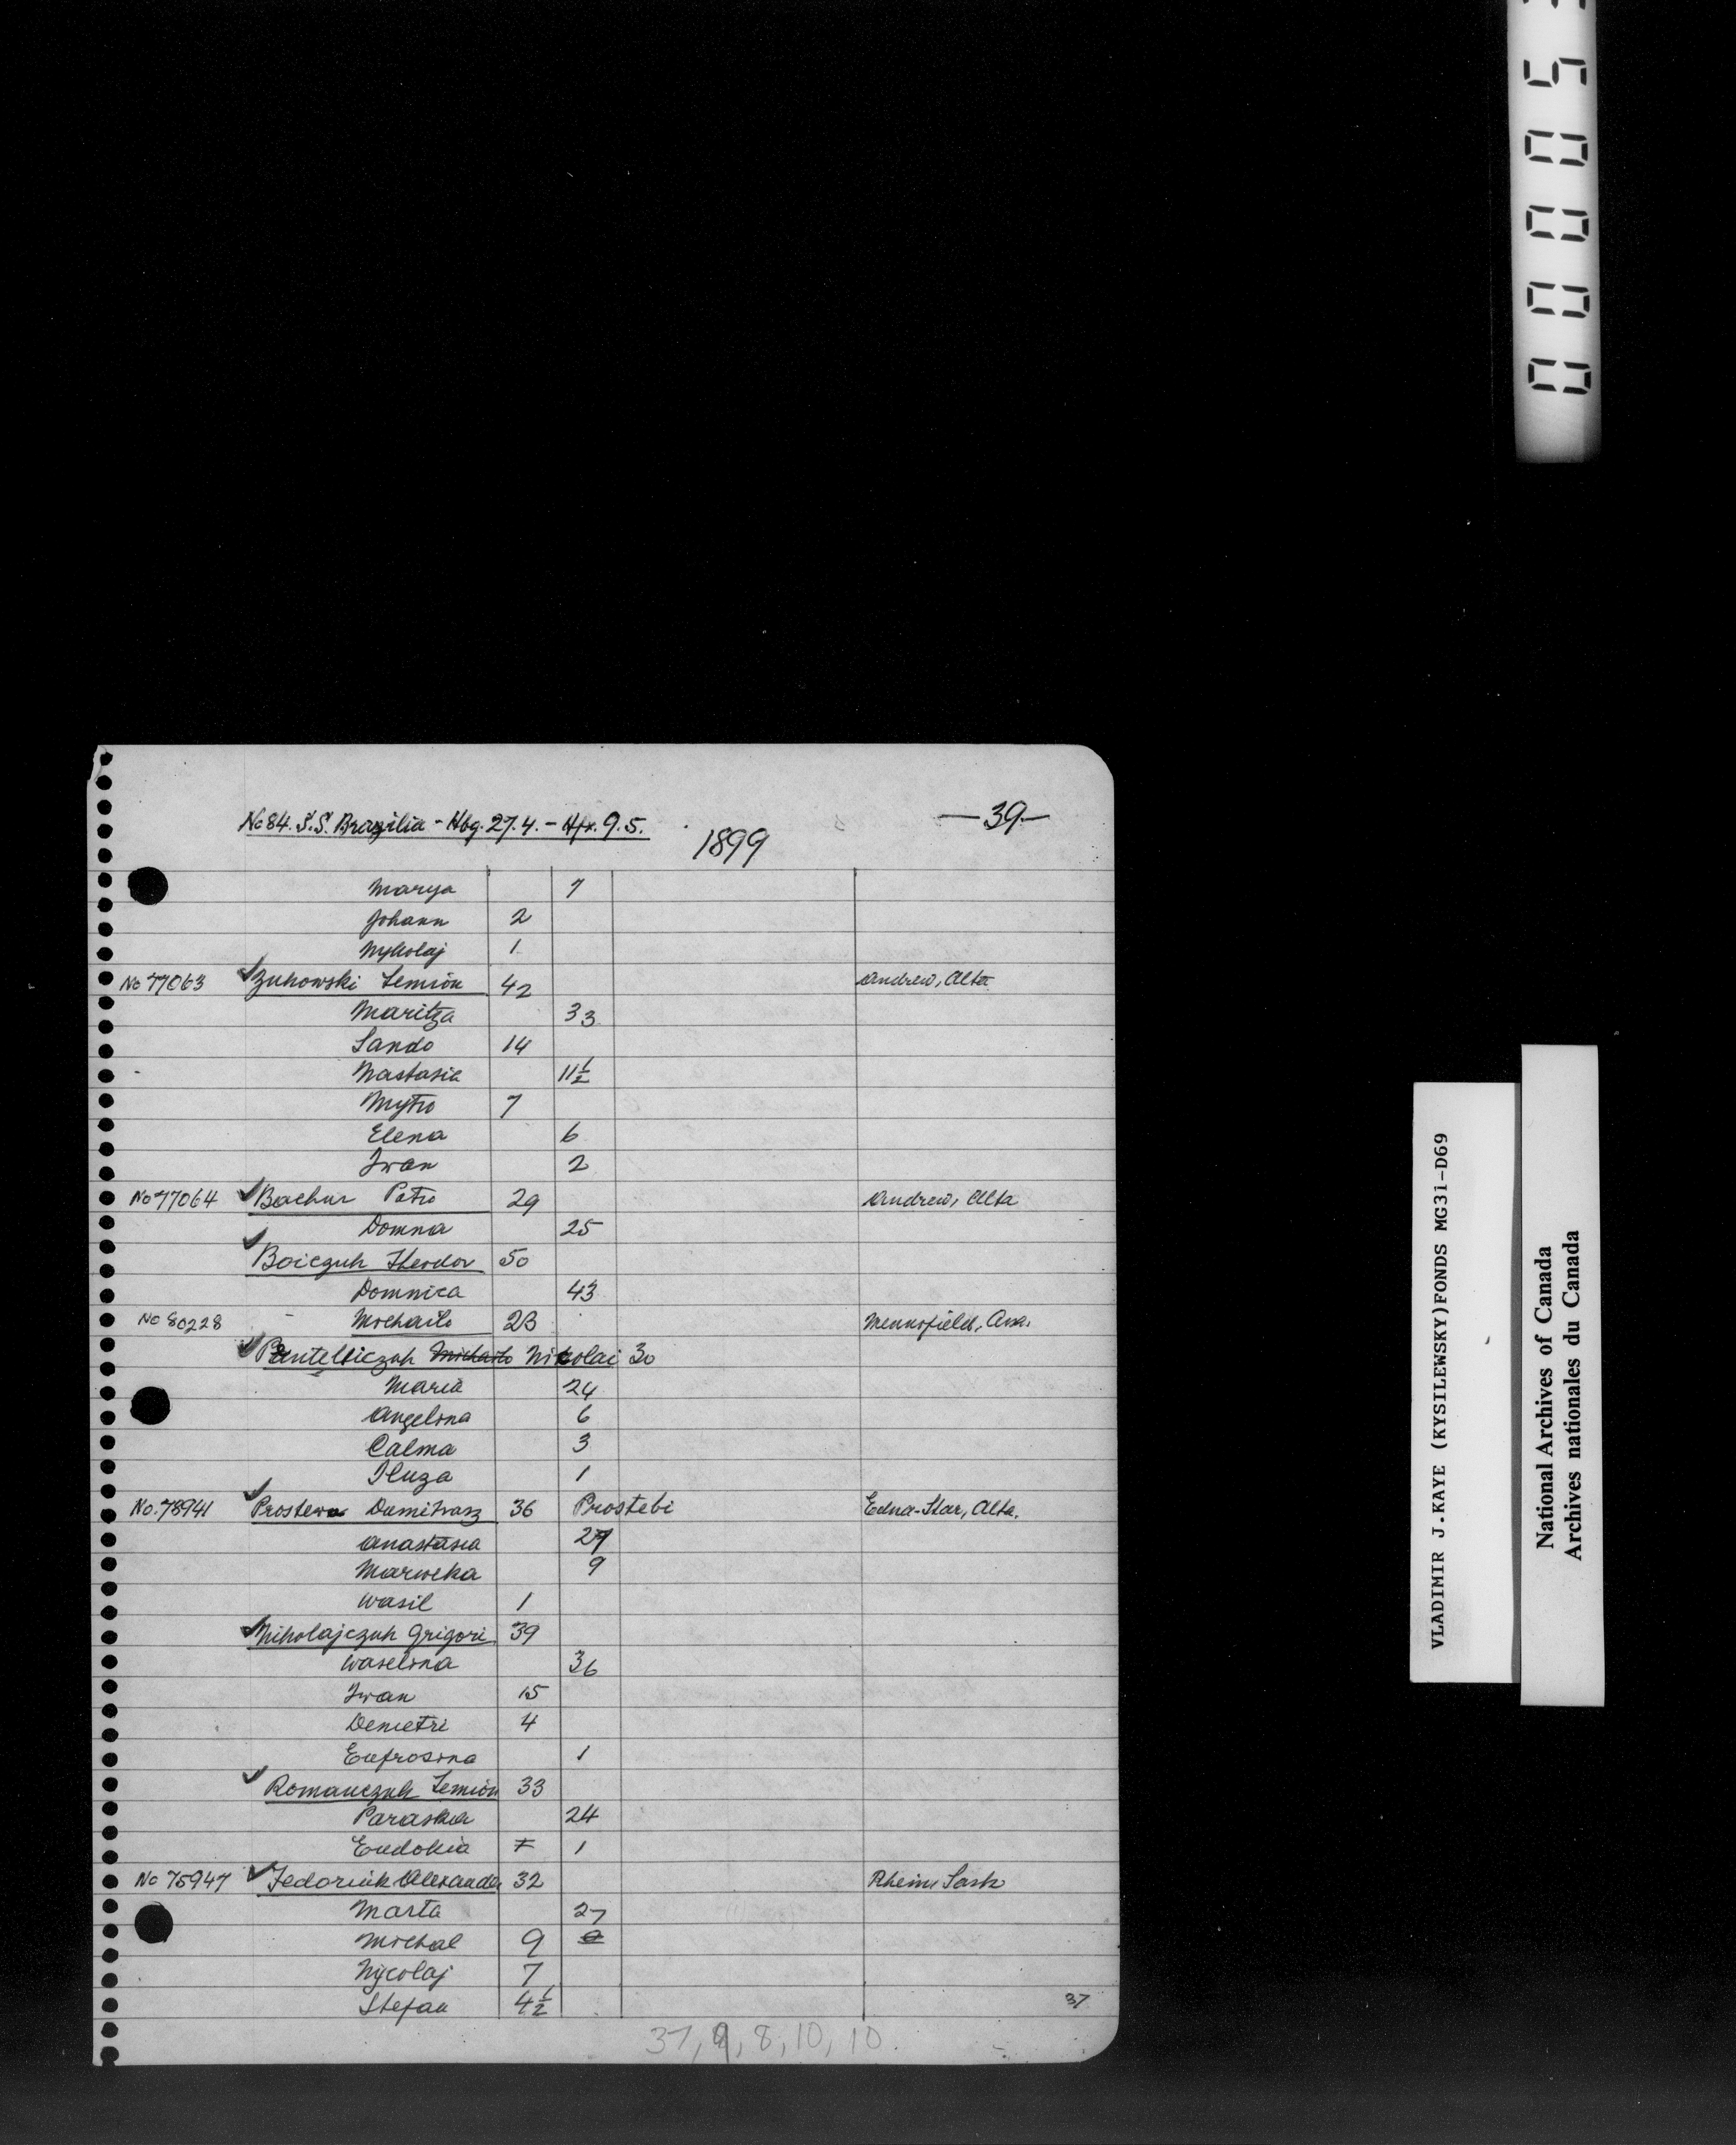 No 84. S.S. Brazilia - Hbg. 27.4. - Hfx. 9.5.
1899
—39—
Marya 7
Johann 2
Mykolaj 1
No 77063 Zukowski Semion 42 Andrew, Alta
Maritza 33
Sando 14
Nastasia 11½
Mytro 7
Elena 6
Iwan 2
No 77064 Bachur Petro 29 Andrew, Alta
Domna 25
Boiczuk Theodor 50
Domnica 43
No 80228 - Michailo 23
Pentelliczuk Michailo Nikolai 30
Maria 24
Angelina 6
Calma 3
Iluza 1
No. 78941 Prostera Dumitrasz 36 Prostebi Edna-Star, Alta.
Anastasia 27
Marweka 9
Wasil 1
Mikolajczuk Grigori 39
Waselina 36
Iwan 15
Demetri 4
Eufrosina 1
Romanczuk Semion 33
Paraska 24
Eudokia 1
No 75947 Fedoriuk Alexander 32 Rhein, Sask
Marta 27
Michal 9
Nycolaj 7
Stefan 4½
37
37, 9, 8, 10, 10.
00005
VLADIMIR J.KAYE (KYSILEWSKY)FONDS MG31-D69
National Archives of Canada
Archives nationales du Canada